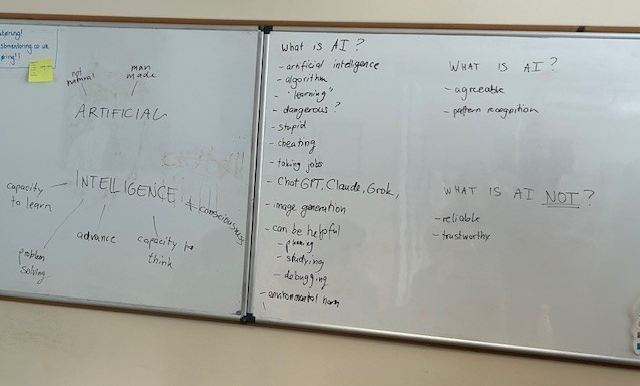 not
natural
man
made
ARTIFICIAL
capacity
to learn
INTELLIGENCE
≠ consciousness
problem
solving
advance
capacity to
think
What is AI?
- artificial intelligence
- algorithm
- "learning"
- dangerous?
- stupid
- cheating
- taking jobs
- ChatGPT, Claude, Grok,
- image generation
- can be helpful
- planning
- studying
- debugging
- environmental harm
WHAT IS AI?
- agreeable
- pattern recognition
WHAT IS AI NOT?
- reliable
- trustworthy